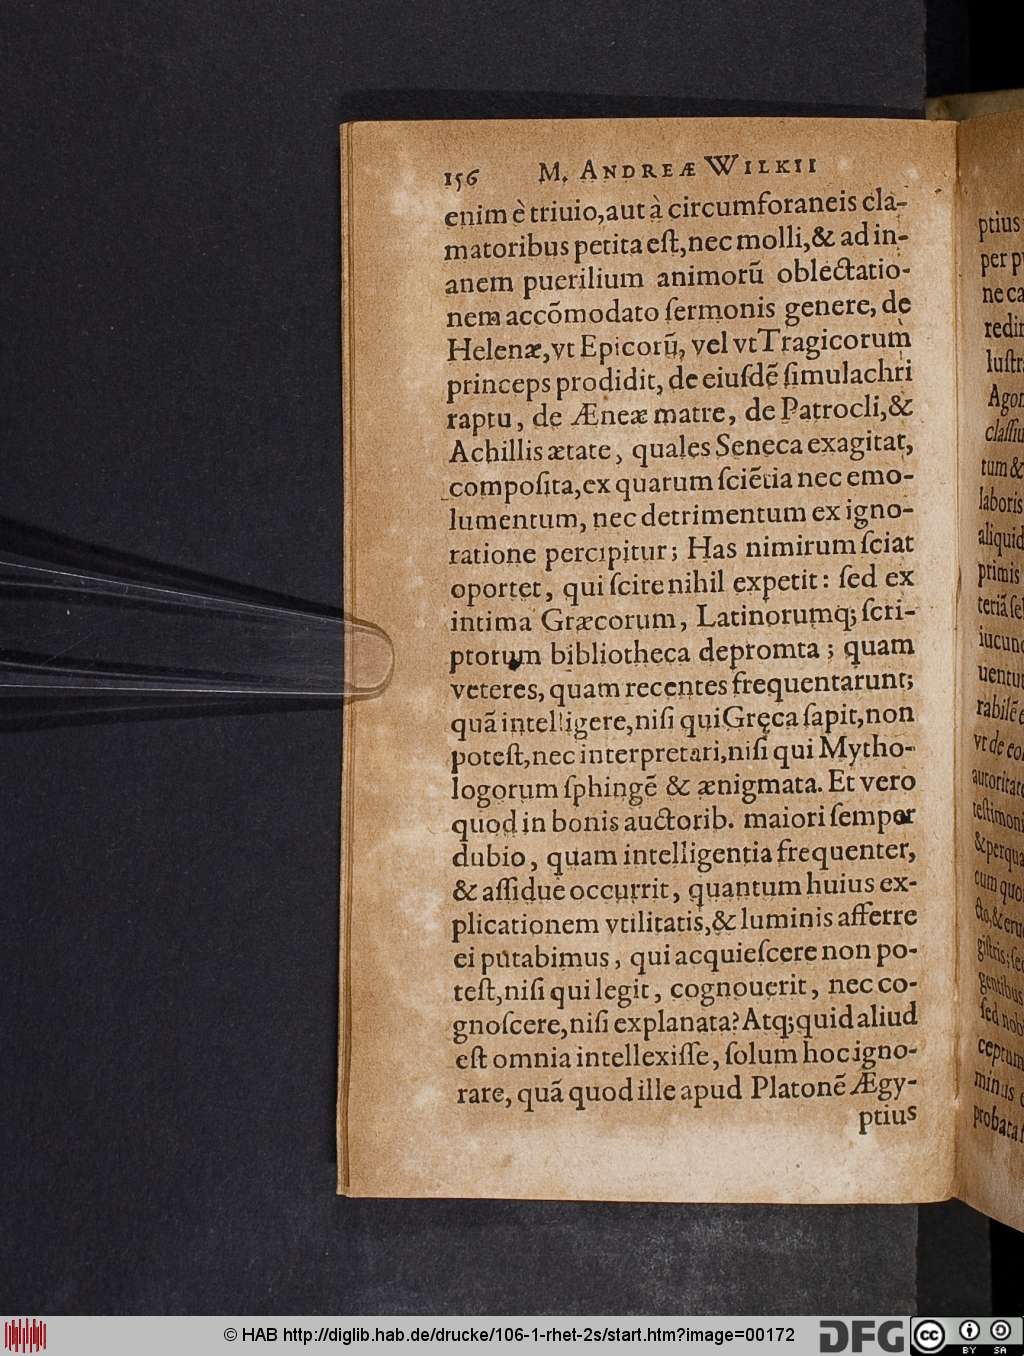 156 M. ANDREÆ WILKII
enim è triuio, aut à circumforaneis cla-
matoribus petita eſt, nec molli, & ad in-
anem puerilium animorũ oblectatio-
nem accõmodato ſermonis genere, de
Helenæ, vt Epicorũ, vel vt Tragicorum
princeps prodidit, de eiuſdẽ ſimulachri
raptu, de Æneæ matre, de Patrocli, &
Achillis ætate, quales Seneca exagitat,
compoſita, ex quarum ſciẽtia nec emo-
lumentum, nec detrimentum ex igno-
ratione percipitur; Has nimirum ſciat
oportet, qui ſcire nihil expetit: ſed ex
intima Græcorum, Latinorumq; ſcri-
ptorum bibliotheca depromta; quam
veteres, quam recentes frequentarunt;
quã intelligere, niſi qui Gręca ſapit, non
poteſt, nec interpretari, niſi qui Mytho-
logorum ſphingẽ & ænigmata. Et vero
quod in bonis auctorib. maiori ſemper
dubio, quam intelligentia frequenter,
& aſſiduè occurrit, quantum huius ex-
plicationem vtilitatis, & luminis afferre
ei putabimus, qui acquieſcere non po-
teſt, niſi qui legit, cognouerit, nec co-
gnoſcere, niſi explanata? Atq; quid aliud
eſt omnia intellexiſſe, ſolum hoc igno-
rare, quã quod ille apud Platonẽ Ægy-
ptius
ptius
per
ne
laboris
aliquid
primis
vt de
© HAB http://diglib.hab.de/drucke/106-1-rhet-2s/start.htm?image=00172
DFG
cc
BY SA